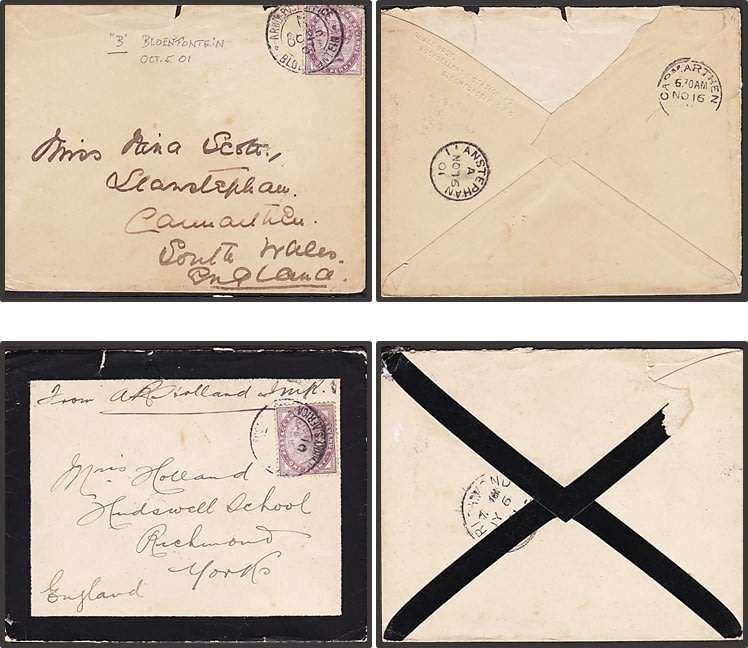 "B" BLOEMFONTEIN
OCT. 5 01
ARMY POST OFFICE
Miss Nina Scott,
Llanstephan.
Carmarthen.
South Wales.
England.
CARMARTHEN
6.30AM
NO 16
LLANSTEPHAN
A
NO 16
01
From A R Holland
Mrs Holland
Hudswell School
Richmond
Yorks
England
RICHMOND